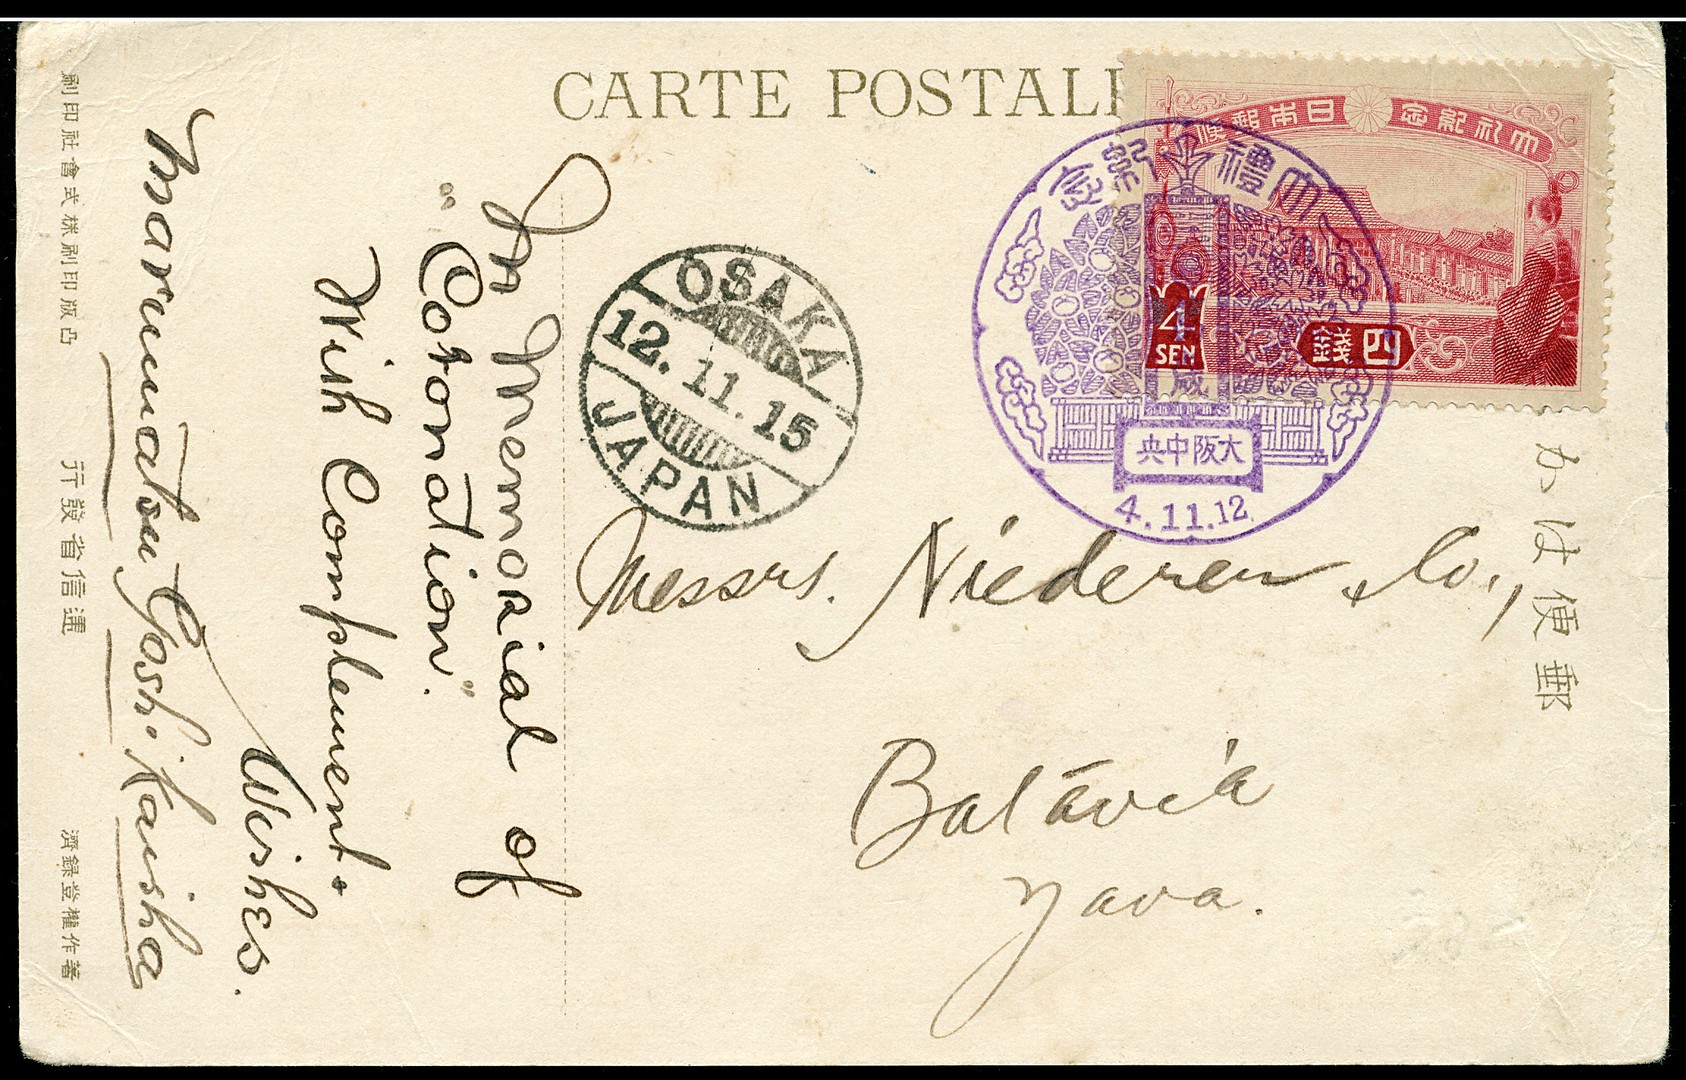 CARTE POSTALE
大礼紀念
日本郵便
4
SEN
四錢
大禮紀念
大阪中央
4.11.12
OSAKA
12.11.15
JAPAN
郵便はかき
Messrs. Niederer & Co.,
Batavia
Yava.
In Memorial of
"Coronation."
With Complement &
Wishes.
Marumatsu Goshi Kaisha
著作權登錄濟
逓信省發行
凸版印刷株式會社印刷